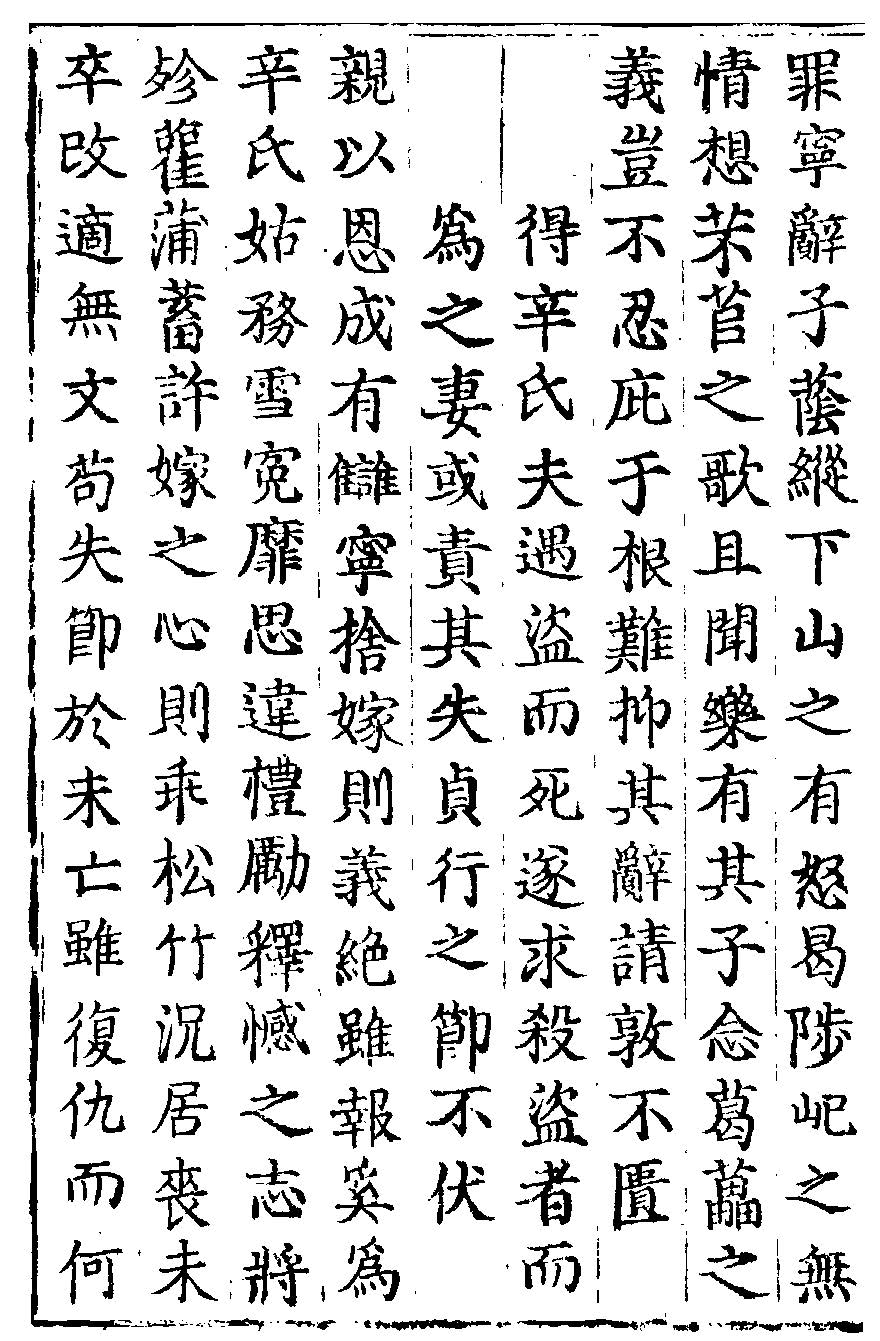 罪寧辭子蔭縱下山之有怒曷陟屺之無
情想芣苢之歌且聞樂有其子念葛藟之
義豈不忍庇于根難抑其辭請敦不匱
得辛氏夫遇盜而死遂求殺盜者而
爲之妻或責其失貞行之節不伏
親以恩成有讎寧捨嫁則義絕雖報奚爲
辛氏姑務雪寃靡思違禮勵釋憾之志將
殄雚蒲蓄許嫁之心則乖松竹況居喪未
卒改適無文苟失節於未亡雖復仇而何